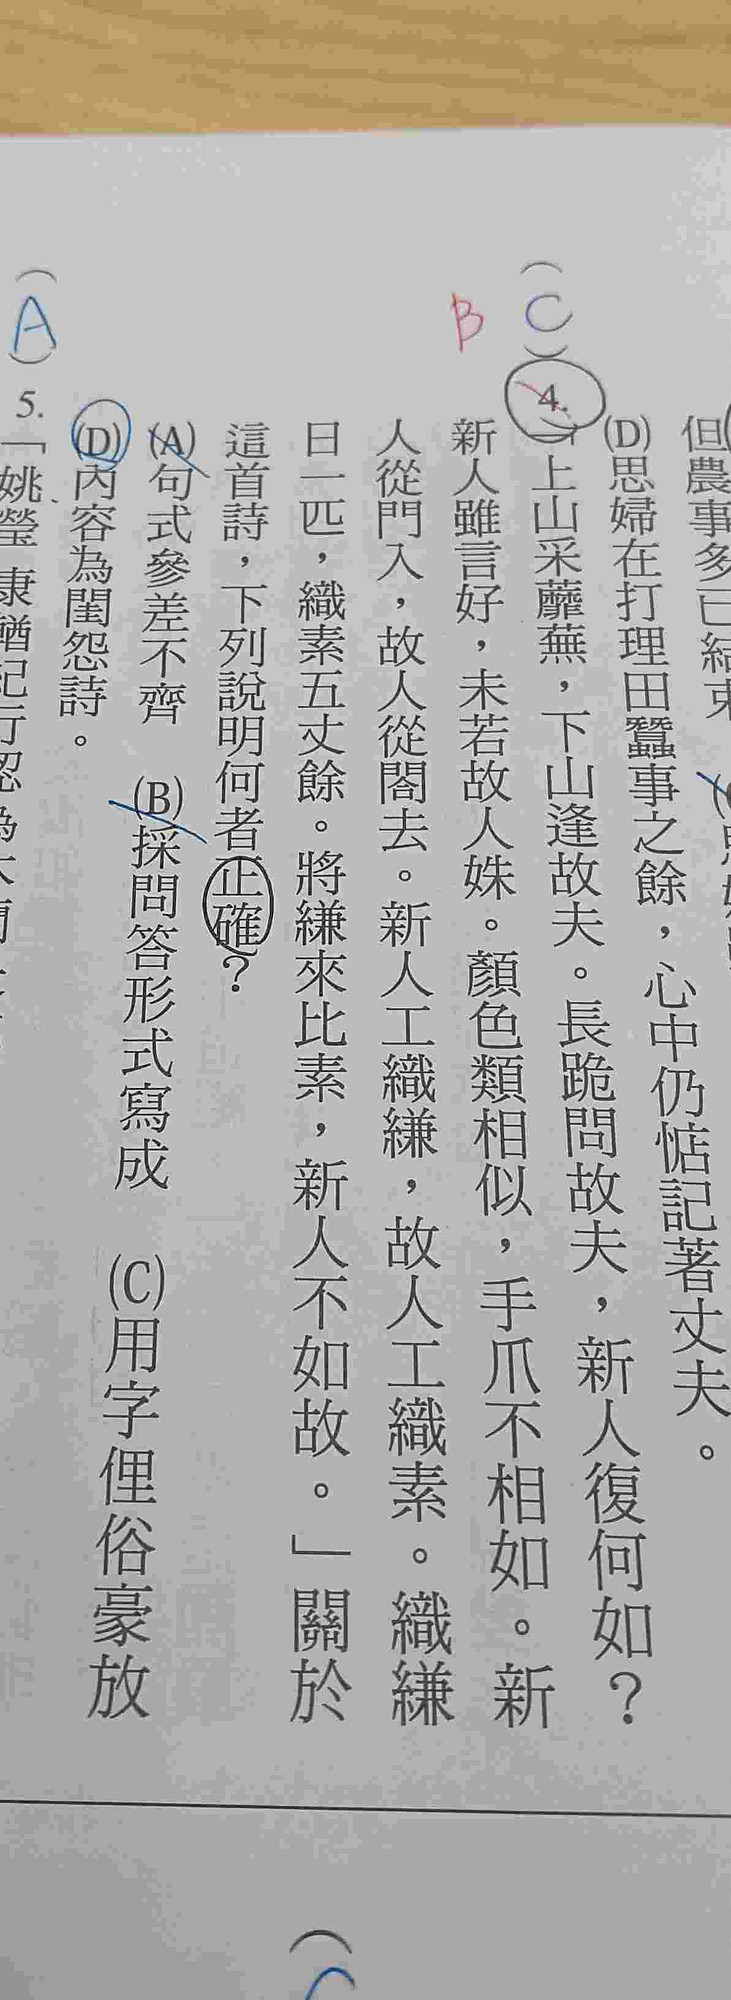 但農事多已結束
(D)思婦在打理田蠶事之餘，心中仍惦記著丈夫。
(C) B
4.「上山采蘼蕪，下山逢故夫。長跪問故夫，新人復何如？
新人雖言好，未若故人姝。顏色類相似，手爪不相如。新
人從門入，故人從閤去。新人工織縑，故人工織素。織縑
日一匹，織素五丈餘。將縑來比素，新人不如故。」關於
這首詩，下列說明何者正確？
(A)句式參差不齊 (B)採問答形式寫成 (C)用字俚俗豪放
(D)內容為閨怨詩。
(A)
5.「姚瑩 康輶紀行認為木蘭